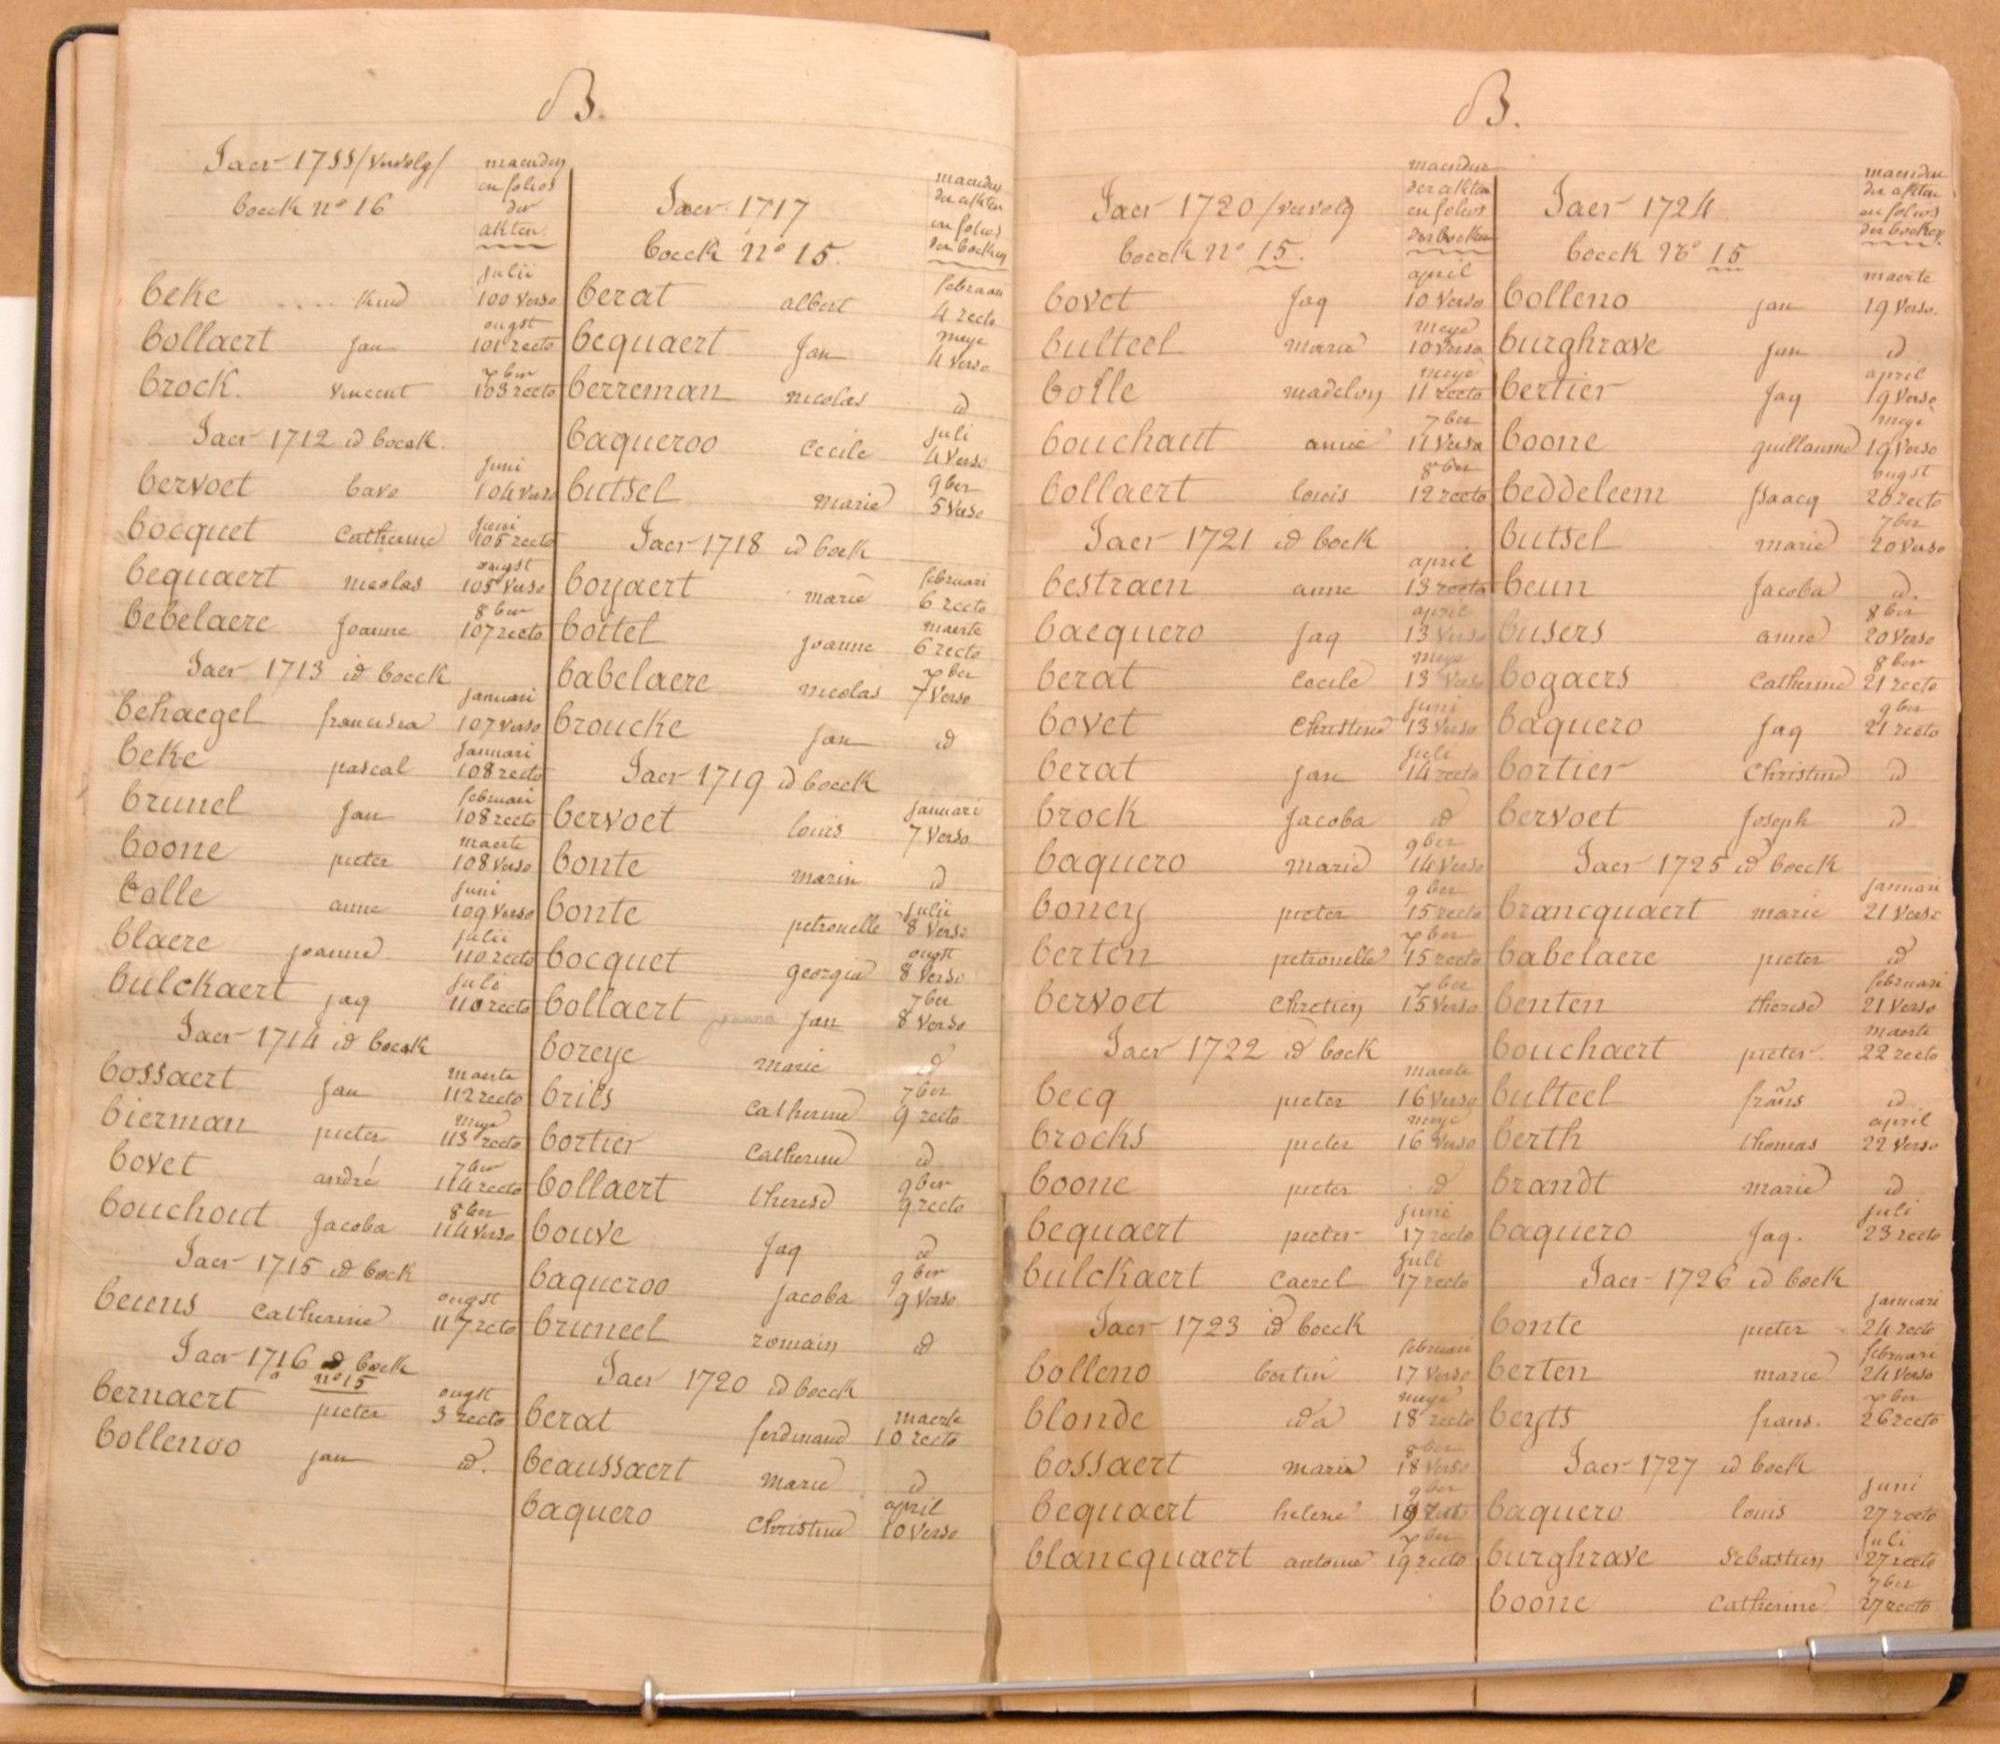 B.
Jaer 1711 /vervolg/
boeck nº 16
maenden
en folios
der
akten.
beke .... kind julii 100 verso
bollaert jan ougst 101 recto
brock. vincent 7ber 103 recto
Jaer 1712 id boeck.
bervoet bavo juni 104 verso
bocquet Catherine juni 105 recto
bequaert nicolas ougst 105 verso
bebelaere joanne 8ber 107 recto
Jaer 1713 id boeck
behaegel francisca januari 107 verso
beke pascal januari 108 recto
brunel jan februari 108 recto
boone pieter maerte 108 verso
bolle anne juni 109 verso
blaere joanne julii 110 recto
bulckaert jaq juli 110 recto
Jaer 1714 id boeck
bossaert jan maerte 112 recto
bierman pieter meye 113 recto
bovet andré 7ber 114 recto
bouchout jacoba 8ber 114 verso
Jaer 1715 id boek
beiens Catherine ougst 117 recto
Jaer 1716 id boek
nº 15
bernaert pieter ougst 3 recto
bollenoo jan id.
Jaer 1717
boeck nº 15.
maenden
der akten
en folios
der boecken
berat albert februari 4 recto
bequaert jan meye 4 verso
berreman nicolas id
baqueroo Cecile juli 4 verso
butsel marie 9ber 5 verso
Jaer 1718 id boek
boyaert marie februari 6 recto
bottel joanne maerte 6 recto
babelaere nicolas 7ber 7 verso
broucke jan id
Jaer 1719 id boeck
bervoet louis januari 7 verso
bonte marin id
bonte petronelle julii 8 verso
bocquet georgia ougst 8 verso
bollaert jan 7ber 8 verso
boreye marie id
brils catherine 7ber 9 recto
bortier catherine id
bollaert therese 9ber 9 recto
bouve jaq id
baqueroo jacoba 9ber 9 verso
bruneel romain id
Jaer 1720 id boeck
berat ferdinand maerte 10 recto
beaussaert marie id
baquero Christine april 10 verso
B.
Jaer 1720 /vervolg
boeck nº 15.
maenden
der akten
en folios
der boeken
bovet jaq april 10 verso
bulteel marie meye 10 verso
bolle madelon meye 11 recto
bouchaut anne 7ber 11 verso
bollaert louis 8ber 12 recto
Jaer 1721 id boek
bestraen anne april 13 recto
bacquero jaq april 13 verso
berat Cecile meye 13 verso
bovet Christine juni 13 verso
berat jan juli 14 recto
brock jacoba id
baquero marie 9ber 14 verso
boney pieter 9ber 15 recto
berten petronelle 7ber 15 recto
bervoet Chretien 7ber 15 verso
Jaer 1722 id boek
becq pieter maerte 16 verso
brocks pieter meye 16 verso
boone pieter id
bequaert pieter juni 17 recto
bulckaert Caerel juli 17 recto
Jaer 1723 id boeck
bolleno bertin februari 17 verso
blonde ida meye 18 recto
bossaert marie 8ber 18 verso
bequaert helene 9ber
blancquaert antoine 7ber 19 recto
Jaer 1724
boeck Nº 15
maenden
der akten
en folios
der boeken
bolleno jan maerte 19 verso.
burghrave jan id
bertier jaq april 19 verso
boone guillaume meye 19 verso
beddeleem isaacq ougst 20 recto
butsel marie 7ber 20 verso
beun jacoba id.
busers anne 8ber 20 verso
bogaers Catherine 8ber 21 recto
baquero jaq 9ber 21 recto
bortier Christine id
bervoet joseph id
Jaer 1725 id boeck
brancquaert marie januari 21 verso
babelaere pieter id
benten therese februari 21 verso
bouchaert pieter maerte 22 recto
bulteel frañs id
berth thomas april 22 verso
brandt marie id
baquero jaq. juli 23 recto
Jaer 1726 id boek
bonte pieter januari 24 recto
berten marie februari 24 verso
beyts frans. 7ber 26 recto
Jaer 1727 id boek
baquero louis juni 27 recto
burghrave sebastien juli 27 recto
boone Catherine 7ber 27 recto